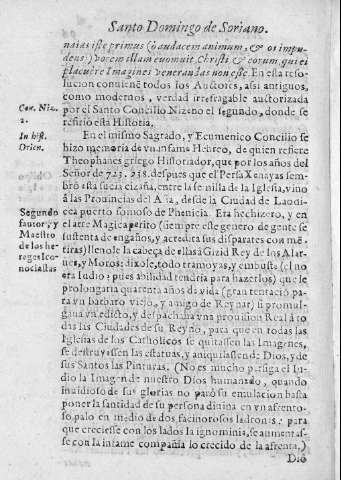 Santo Domingo de Soriano.
naias iste primus (ò audacem animum, & os impu-
dens!) vocem illam evomuit, Christi & eorum, qui ei
placuere Imagines venerandas non esse. En esta reso-
lucion convienẽ todos los Auctores, assi antiguos,
como modernos, verdad irrefragable auctorizada
por el Santo Concilio Nizeno el segundo, donde se
refirio esta Historia.
Con. Niz.
2.
In hist.
Orien.
En el mismo Sagrado, y Ecumenico Concilio se
hizo memoria de vn infame Hebreo, de quien refiere
Theophanes griego Historiador, que por los años del
Señor de 723. 238. despues que el Persa Xenayas sem-
brò esta sucia cizaña, entre la semilla de la Iglesia, vino
à las Provincias del Asia, desde la Ciudad de Laudi-
cea puerto famoso de Phenicia. Era hechizero, y en
el arte Magica perito (siempre este genero de gente se
sustenta de engaños, y acredita sus disparates con mẽ-
tiras) llenole la cabeça de ellas à Gizid Rey de los Alar-
ues, y Moros: dixole, todo tramoyas, y embuste (el no
era Iudio? pues abilidad tendria para hazerlos) que le
prolongaria quarenta años de vida (gran tentaciō pa-
ra vn barbaro viejo, y amigo de Reynar) si promul-
gaua vn edicto, y despachaua vna prouision Real à to
das las Ciudades de su Reyno, para que en todas las
Iglesias de los Catholicos se quitassen las Imagenes,
se destruyessen las estatuas, y aniquilassen de Dios, y de
sus Santos las Pinturas. (No es mucho persiga el Iu-
dio la Imagen de nuestro Dios humanado, quando
inuidioso de sus glorias no parò su emulacion hasta
poner la santidad de su persona diuina en vn afrento-
so palo en medio de dos facinorosos ladrones: para
que creciesse con los lados la ignominia, se aumentas-
se con la infame compañia lo crecido de la afrenta.)
Segundo
fautor, y
Maestro
de los he-
reges Ico-
noclastas
Dió